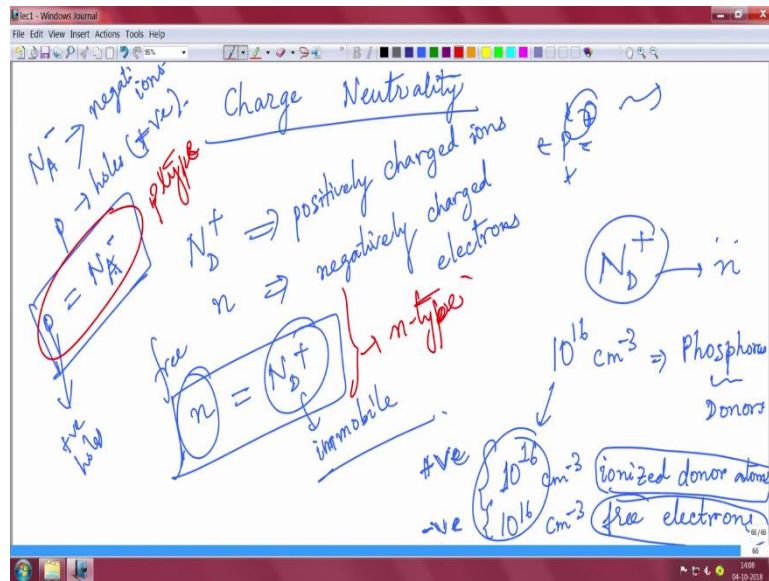 lec1 - Windows Journal
File Edit View Insert Actions Tools Help
95%
B I
Charge Neutrality
N_A^- → negative ions
p → holes (+ve).
p = N_A^-
p type
+ve holes
N_D^+ ⇒ positively charged ions
n ⇒ negatively charged
electrons
free
n = N_D^+
immobile
→ n-type
N_D^+ → n
10^16 cm^-3 ⇒ Phosphorus
Donors
+ve 10^16 cm^-3 ionized donor atoms
-ve 10^16 cm^-3 free electrons
66/66
66
14:08
04-10-2018